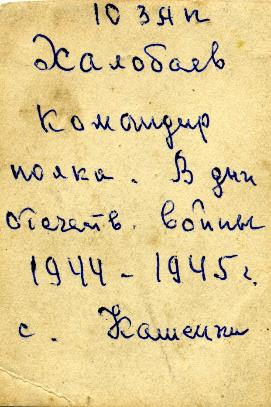 10 ЗАП
Халобаев
командир
полка. В дни
отечеств. войны
1944-1945 г.
с.